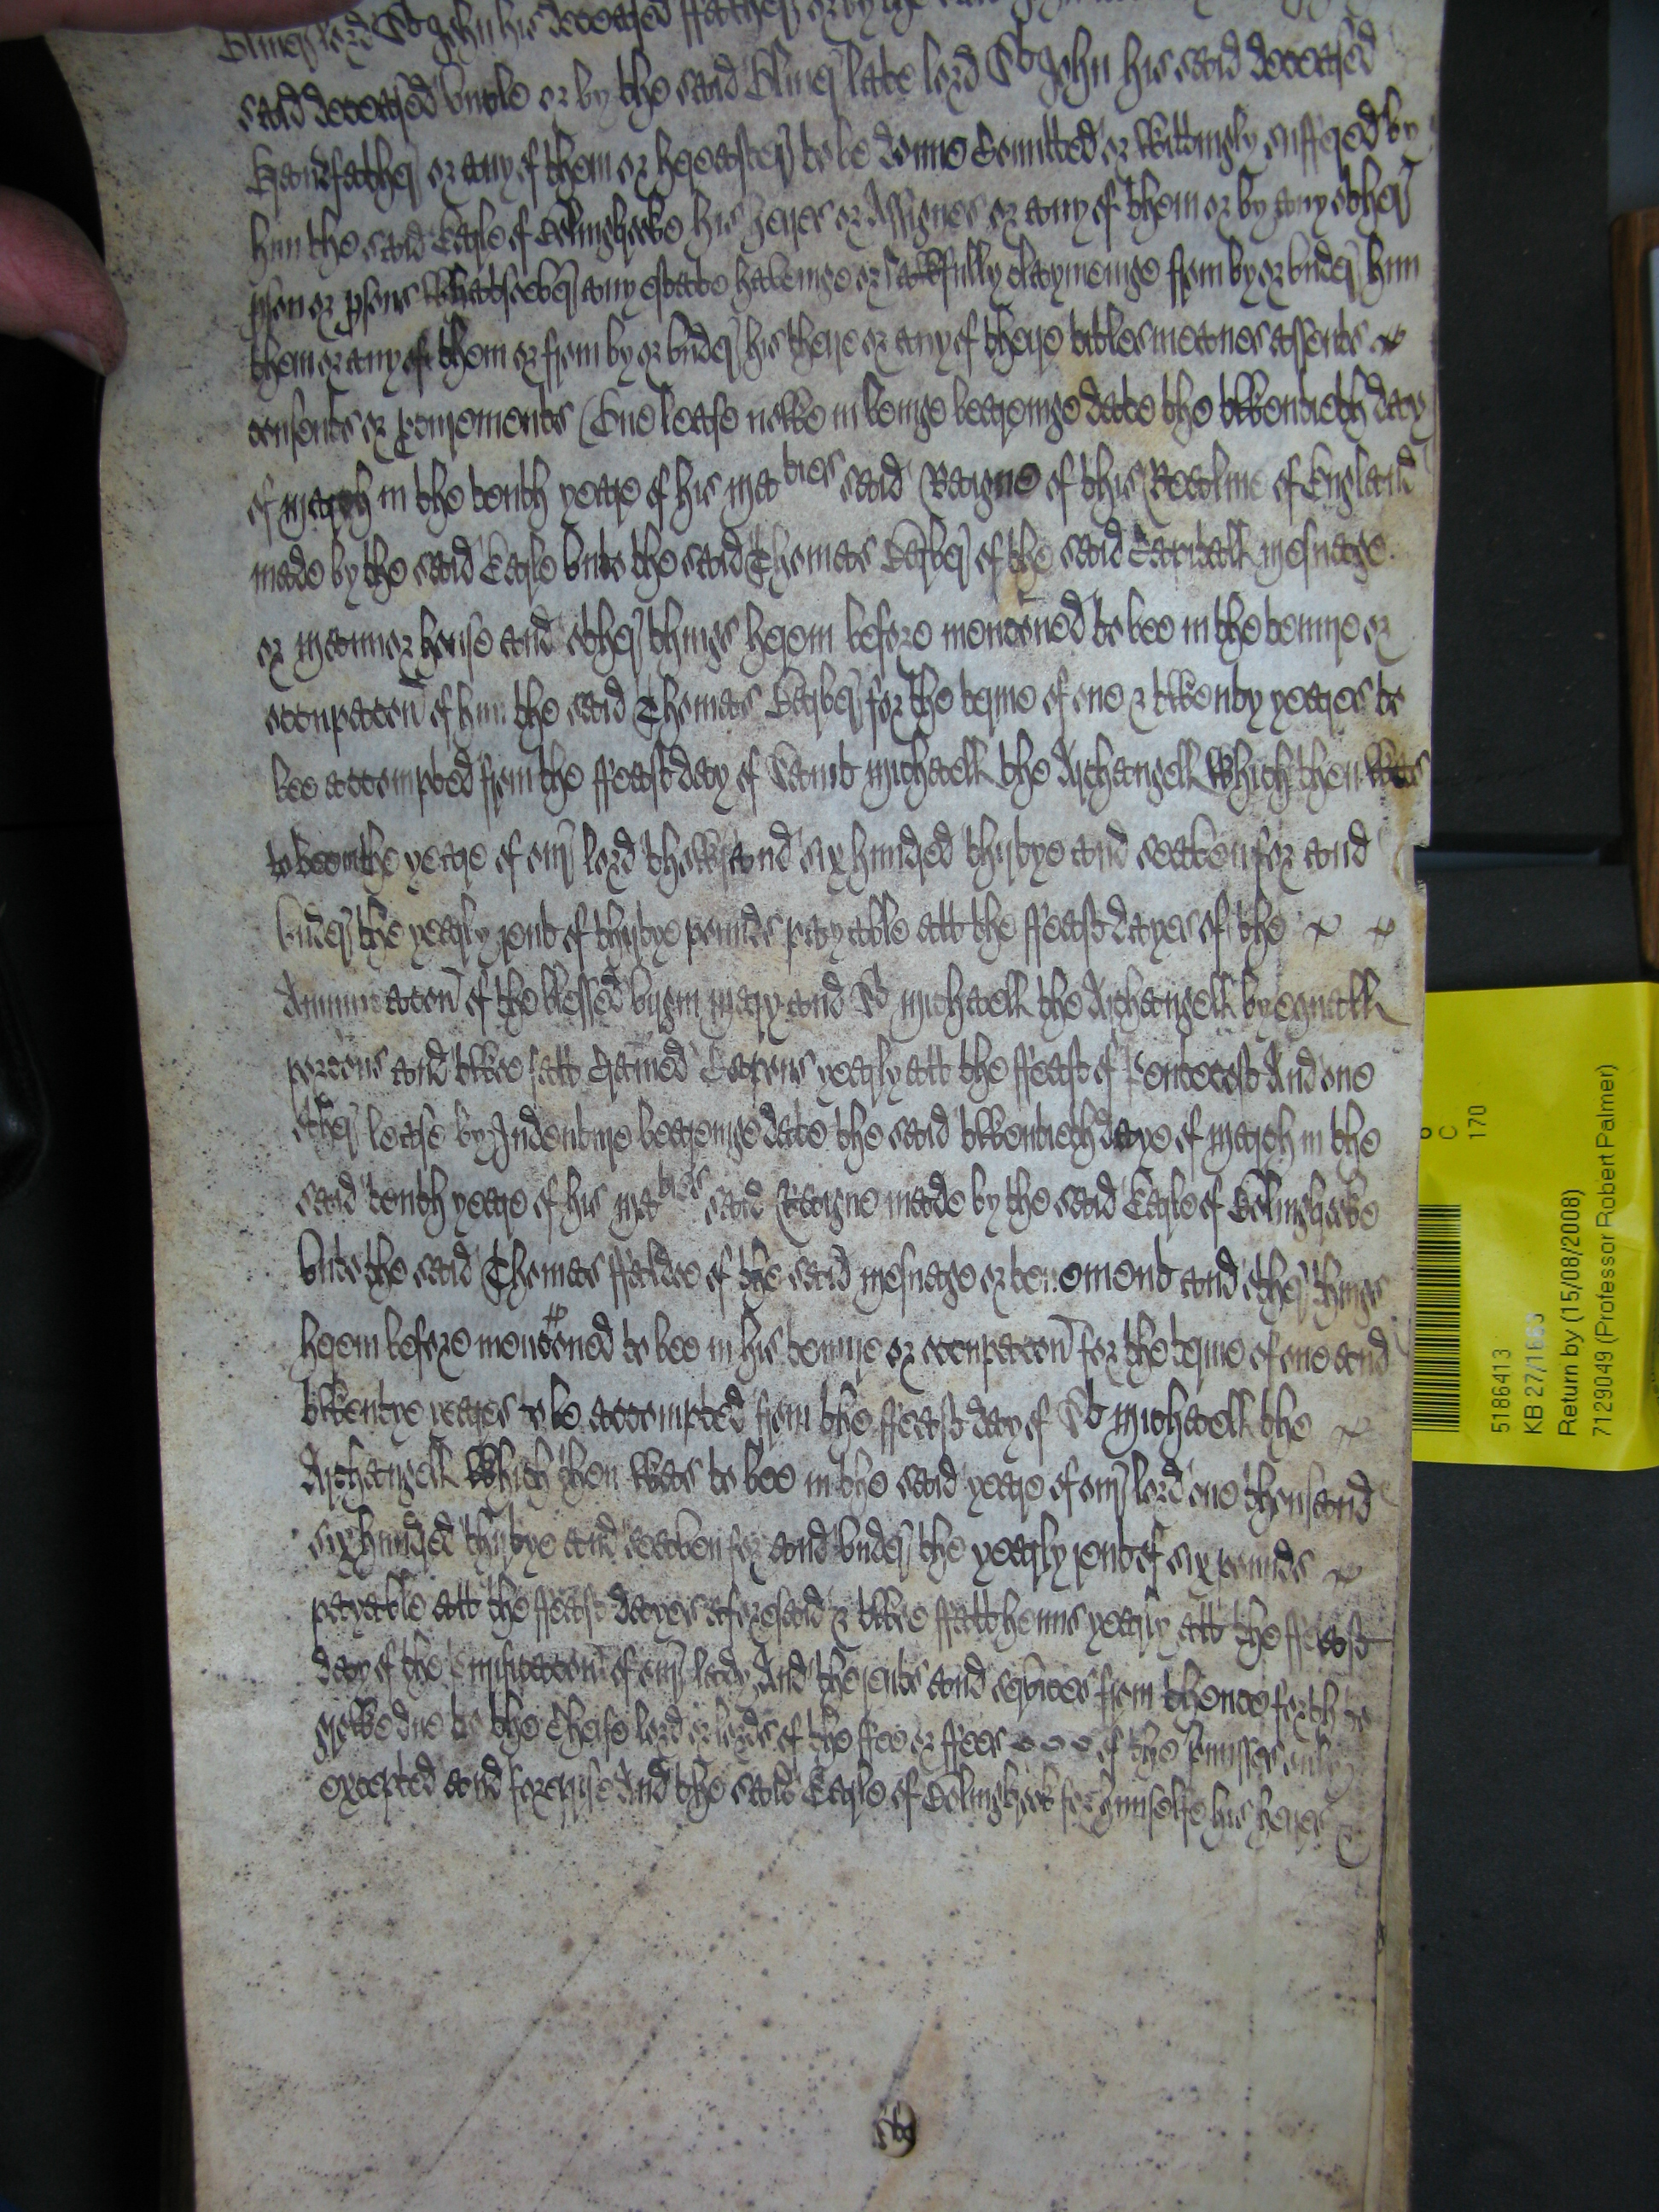 Oliver lord St John his deceased ffather or by the
said deceased unkle or by the said Oliver late lord St John his said deceased
Grandfather or any of them or hereafter to be donne Comitted or Wittingly suffered by
him the said Earle of Bolingbrooke his heires or Assignes or any of them or by any other
pson or psons Whatsoever any estate haveinge or lawfully claymeinge from by or under him
them or any of them or from by or under his theire or any of theire titles meanes assents
consents or procurements (One lease nowe in beinge beareinge date the twentieth day
of march in the tenth yeare of his maties said Raigne of this Realme of England
made by the said Earle unto the said Thomas of the said Capitall mesuage
or mannor house and other things herein before mencioned to bee in the tenure or
occupacon of him the said Thomas for the terme of one & twenty yeares to
bee accompted from the ffeast day of Saint michaell the Archangell Which then was
to bee in the yeare of our lord thowsand six hundred thirtye and seaven for and
under the yearely rent of thirtye pounds payable att the ffeast dayes of the
Annunciacon of the blessed virgin mary and St michaell the Archangell by equall
porcons and twoe fatt Cramed Capons yearely att the ffeast of Pentecost And one
other lease by Indenture beareinge date the said twentieth daye of march in the
said tenth yeare of his maties said Raigne made by the said Earle of Bolingbrooke
unto the said Thomas of the said mesuage or tenement and other things
herein before mencioned to bee in his tenure or occupacon for the terme of one and
twentye yeares to be accompted from the ffeast day of St michaell the
Archangell Which then was to bee in the said yeare of our lord one thousand
six hundred thirtye and seaven for and under the yearely rent of six pounds
payable att the ffeast dayes aforesaid & twoe ffatt henns yearely att the ffeast
day of the Purificacon of our lady And the rents and services from thenceforth to
growe due to the Cheife lord or lords of the ffee or ffees of the premisses only
excepted and foreprised And the said Earle of Bolingbrook for himselfe his heires
C
170
5186413
KB 27/1663
Return by (15/08/2008)
7129049 (Professor Robert Palmer)